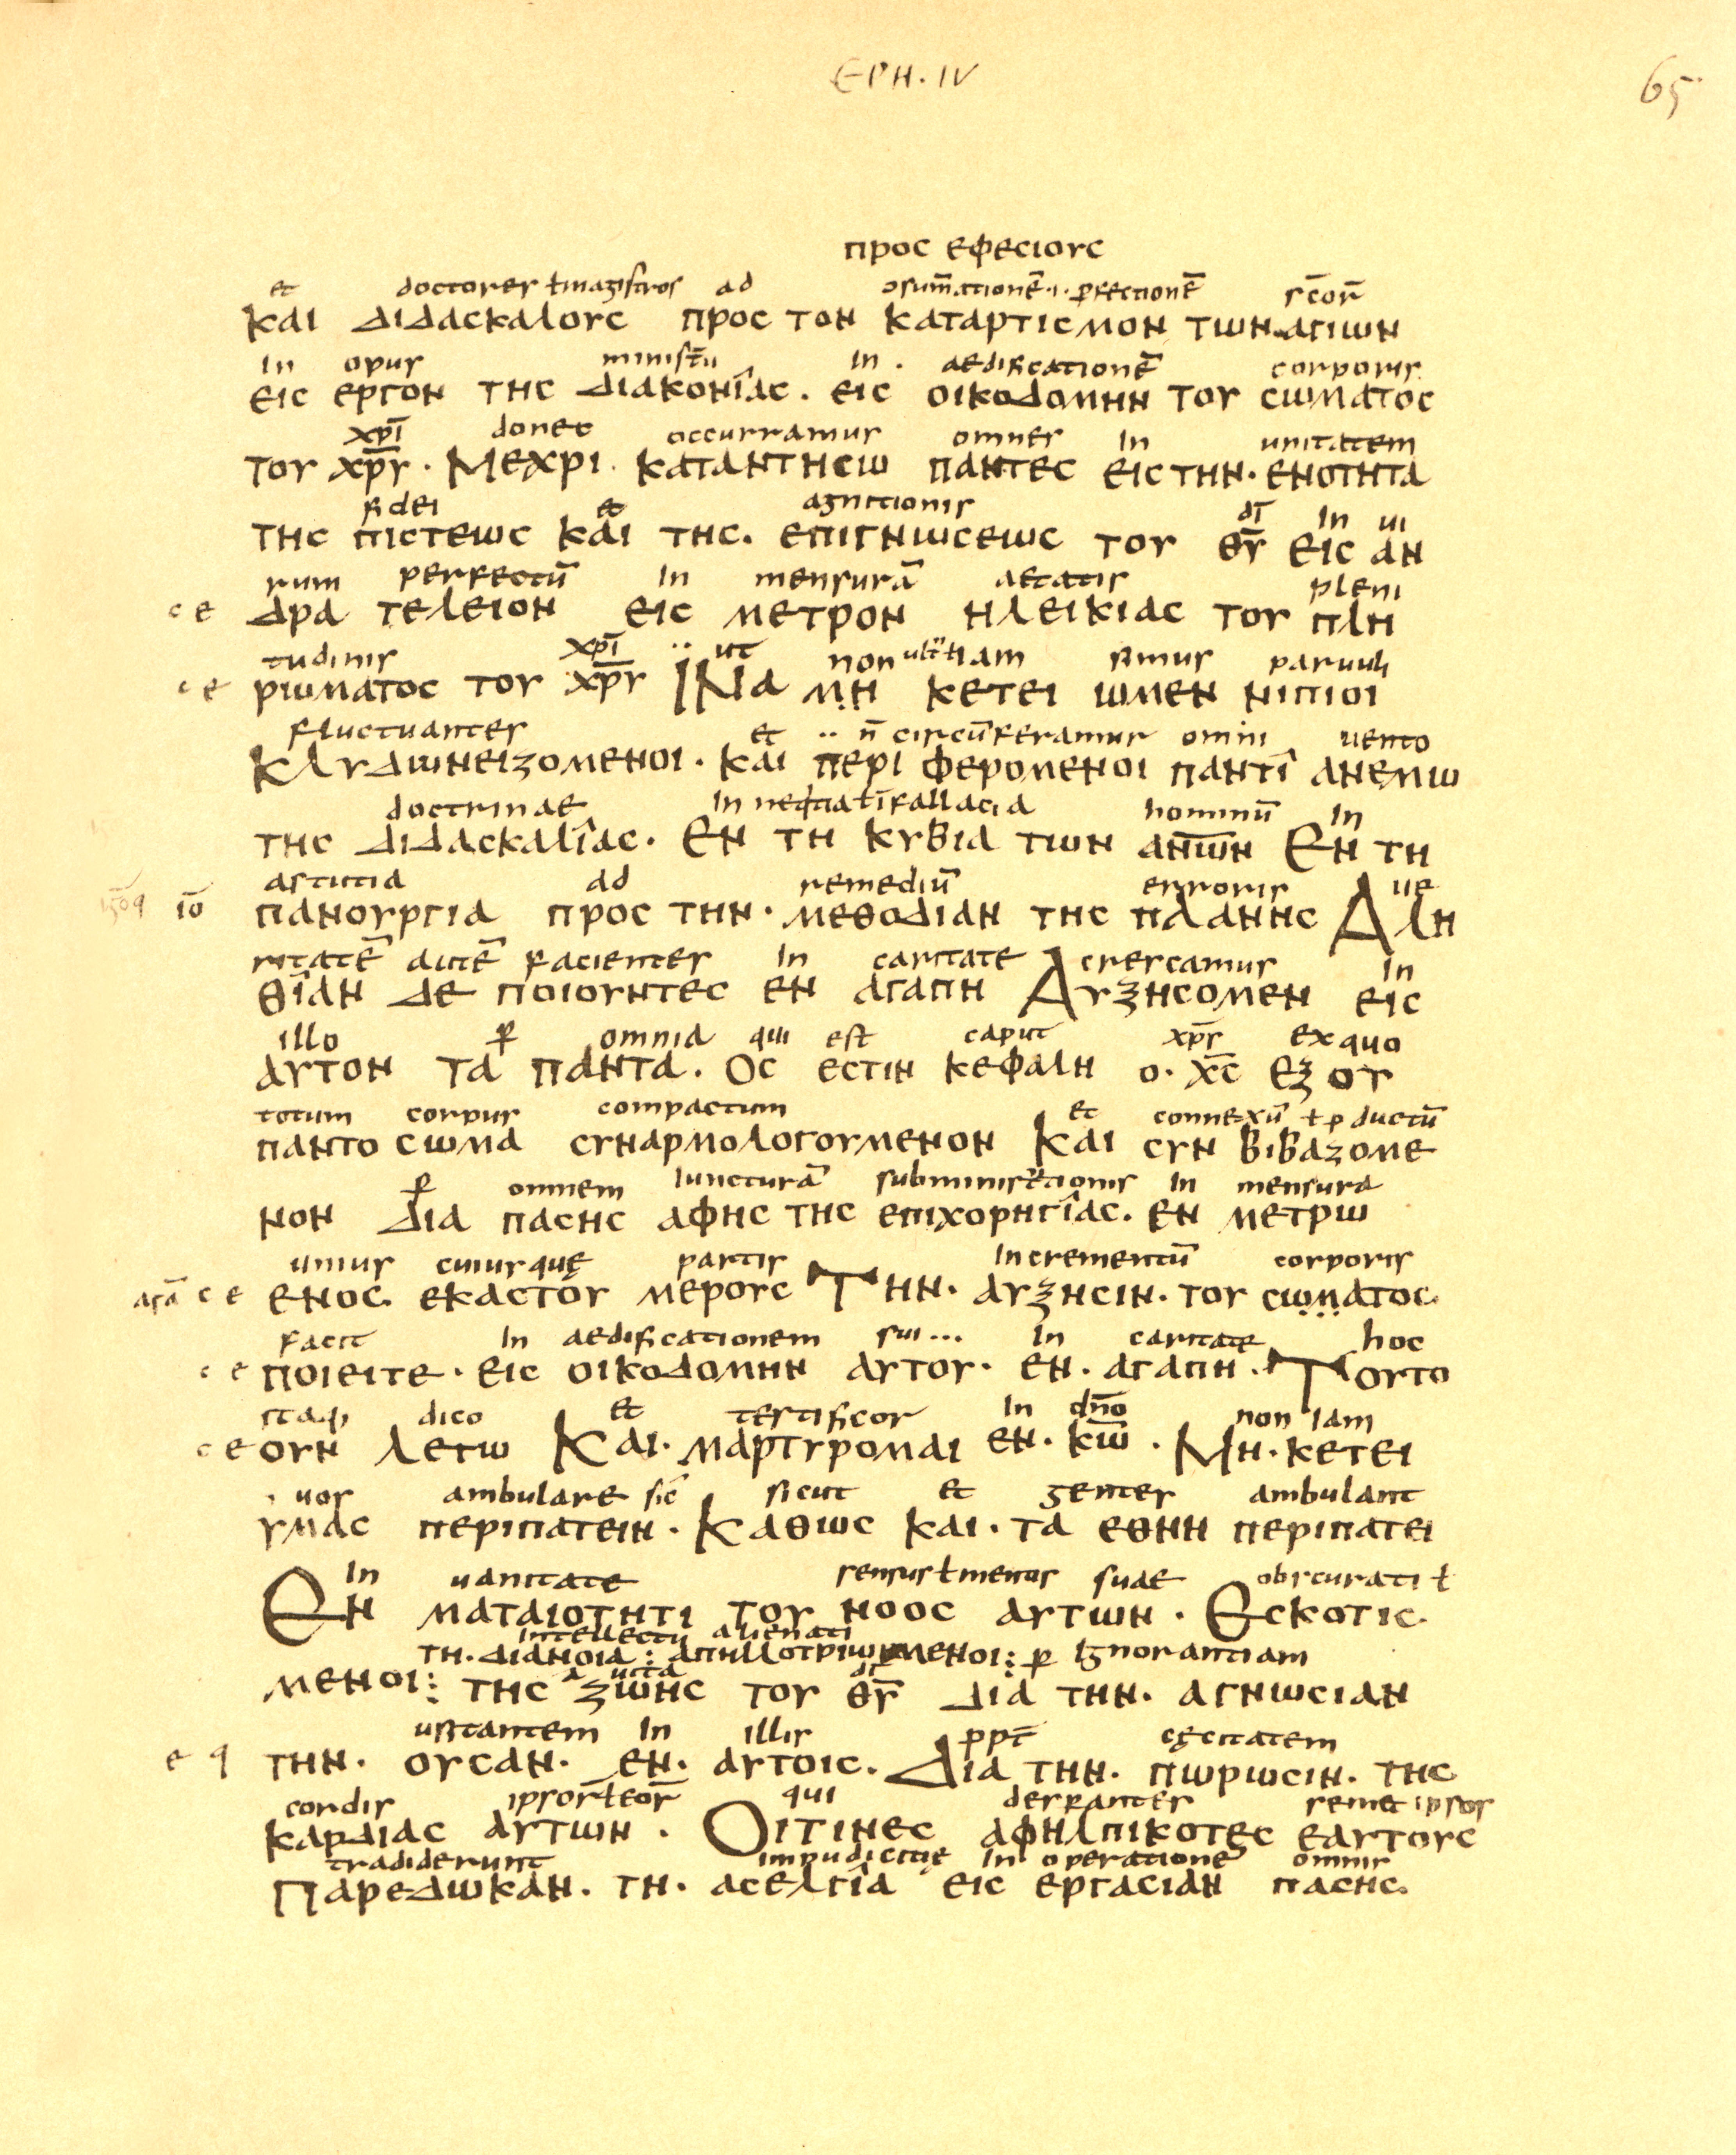 EPH. IV
65
προς εφεσιους
et doctores ł magistros ad 9sum̄ationē .i. ꝑfectionē sc̄or̄
και διδασκαλους προς τον καταρτισμον των αγιων
In opus minist̄ii In . aedificationē corporis
εις εργον της διακονιας . εις οικοδομην του σωματος
xp̄ī donec occurramus omnes In unitatem
του χ̅ρ̅υ̅ . Μεχρι . καταντησω παντες εις την . ενοτητα
fidei et agnitionis dī In ui
της πιστεως και της . επιγνωσεως του θ̅υ̅ εις αν
rum perfectū In mensurā aetatis pleni
c e δρα τελειον εις μετρον ηλεικιας του πλη
tudinis xp̄ī ut non ult̄ ł iam simus paruuli
c e ρωματος του χ̅ρ̅υ̅ ΙΝα μη κετει ωμεν νιπιοι
fluctuantes et n̄ circūferamur omni uento
κλυδωνειζομενοι . και περι φερομενοι παντι ανεμω
doctrinae In neq̄tia ł ī fallacia hominū In
της διδασκαλιας . Εν τη κυβια των αν̅ω̅ν Εν τη
astutia ad remediū erroris ue
ιο̄ πανουργια προς την . μεθοδιαν της πλανης Αλη
ritatē autē facientes In caritate crescamus In
θιαν δε ποιουντες εν αγαπη Αυξησομεν εις
illo ꝑ omnia qui est caput xp̄s ex quo
αυτον τα παντα . Ος εστιν κεφαλη ο . χ̅ς̅ εξ ου
totum corpus compactum et connexū ł ꝓductū
παντο σωμα συναρμολογουμενον Και συν βιβαζομε
ꝑ omnem Iuncturā subministrationis In mensura
νον δια πασης αφης της επιχορηγιας . εν μετρω
unius cuiusquę partis Incrementū corporis
αγα̅ c e ενος . εκαστου μερους Την . αυξησιν . του σωματος .
facit In aedificationem sui ... In caritate hoc
c e ποιειτε . εις οικοδομην αυτου . εν . αγαπη . Τουτο
itaq; dico et testificor In dn̄o non Iam
c e ουν λεγω Και . μαρτυρομαι εν . κ̅ω̅ . Μη . κετει
uos ambulare sic̄ sicut et gentes ambulant
υμας περιπατειν . Καθως και . τα εθνη περιπατει
In uanitate sensus ł mentis suae obscurati ł
Εν ματαιοτητι του νοος αυτων . Εσκοτισ
intellectu alienati
τη . διανοια : απηλλοτριωμενοι : ꝑ Ignorantiam
a uita dī
μενοι : της ζωης του θ̅υ̅ δια την . αγνωσιαν
In illis ꝓpt̄ cęcitatem
e q την . ουσαν . εν . αυτοις . Δια την . πωρωσιν . της
cordis ipsor̄ ł eor̄ qui desperantes semet ipsos
καρδιας αυτων . Οιτινες αφηλπικοτες εαυτους
tradiderunt impudicitię In operatione omnis
Παρεδωκαν . τη . ασελγια εις εργασιαν πασης .